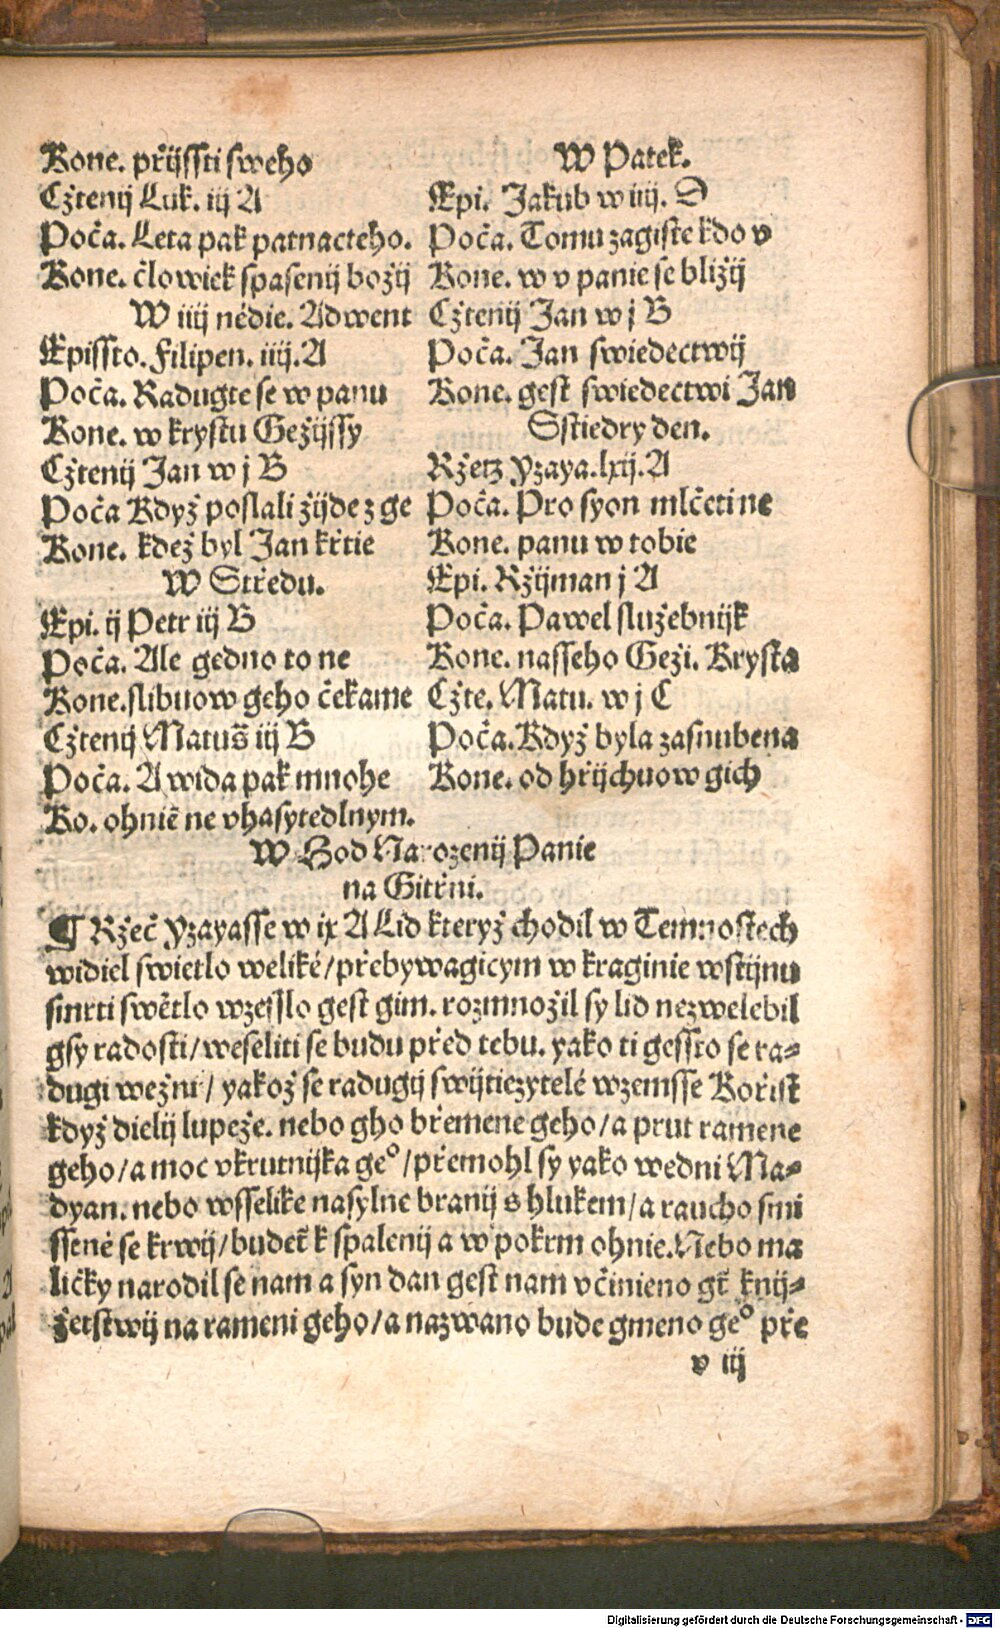 Kone. přijssti sweho
Cžtenij Luk. iij A
Poča. Leta pak patnacteho.
Kone. člowiek spasenij božij
W iiij nedie. Adwent
Epissto. Filipen. iiij. A
Poča. Radugte se w panu
Kone. w krystu Gežijssy
Cžtenij Jan w j B
Poča Když poslali žijde z ge
Kone. kdež byl Jan křtie
W Středu.
Epi. ij Petr iij B
Poča. Ale gedno to ne
Kone. slibuow geho čekame
Cžtenij Matuš iij B
Poča. A wida pak mnohe
Ko. ohniē ne vhasytedlnym.
W Patek.
Epi. Jakub w iiij. D
Poča. Tomu zagiste kdo v
Kone. w v panie se bližij
Cžtenij Jan w j B
Poča. Jan swiedectwij
Kone. gest swiedectwi Jan
Sstiedry den.
Ržetz Yzaya. lxij. A
Poča. Pro syon mlčeti ne
Kone. panu w tobie
Epi. Ržijman j A
Poča. Pawel služebnijk
Kone. nasseho Geži. Krysta
Cžte. Matu. w j C
Poča. Když byla zasnubena
Kone. od hřijchuow gich
W Hod Narozenij Panie
na Gitřni.
¶ Ržeč Yzayasse w ix A Lid kteryž chodil w Temnostech
widiel swietlo weliké/přebywagicym w kraginie wstijnu
smrti swětlo wzesslo gest gim. rozmnožil sy lid nezwelebil
gsy radosti/weseliti se budu před tebu. yako ti gessto se ra⸗
dugi wežni/ yakož se radugij swijtiezytelé wzemsse Kořist
když dielij lupeže. nebo gho břemene geho/a prut ramene
geho/a moc vkrutnijka geº/přemohl sy yako wedni Ma⸗
dyan. nebo wsselike nasylne branij s hlukem/a raucho smi
ssené se krwij/budet̄ k spalenij a w pokrm ohnie. Nebo ma
ličky narodil se nam a syn dan gest nam včinieno gt̄ knij⸗
žetstwij na rameni geho/a nazwano bude gmeno geº pře
v iij
Digitalisierung gefördert durch die Deutsche Forschungsgemeinschaft - DFG